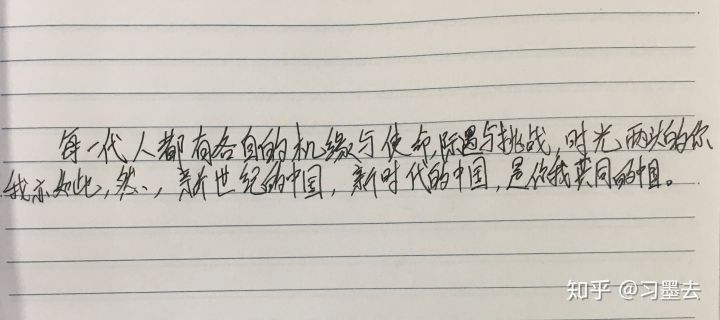 每一代人都有各自的机缘与使命,际遇与挑战,时光两头的你
我亦如此,然,新世纪的中国,新时代的中国,是你我共同的中国。
知乎 @习墨去